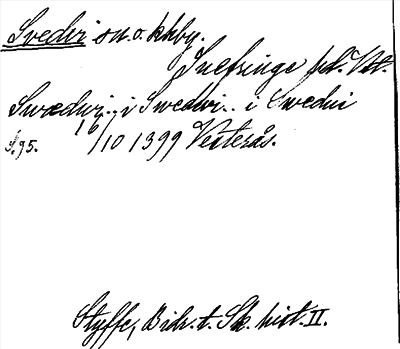 Svedvi sn. o. khby.
Snefringe hd. Vstm.
Swædwj. i Swedwi.. i Swedui
S. 95. 16/10 1399 Vesterås.
Styffe, Bidr. t. Sk. hist. II.